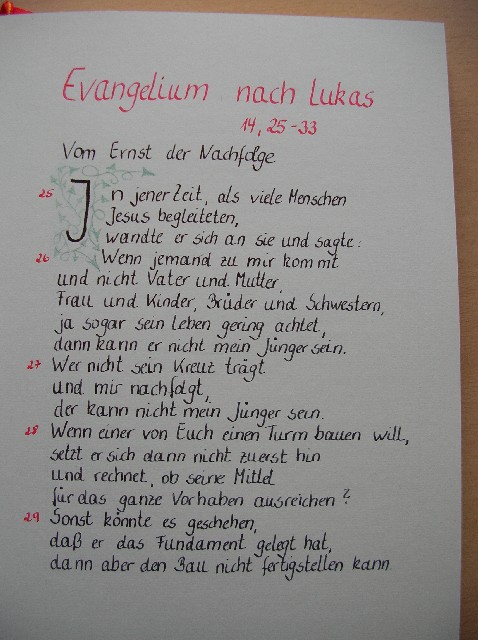 Evangelium nach Lukas
14, 25-33
Vom Ernst der Nachfolge
25 In jener Zeit, als viele Menschen
Jesus begleiteten,
wandte er sich an sie und sagte:
26 Wenn jemand zu mir kommt
und nicht Vater und Mutter,
Frau und Kinder, Brüder und Schwestern,
ja sogar sein Leben gering achtet,
dann kann er nicht mein Jünger sein.
27 Wer nicht sein Kreuz trägt
und mir nachfolgt,
der kann nicht mein Jünger sein.
28 Wenn einer von Euch einen Turm bauen will,
setzt er sich dann nicht zuerst hin
und rechnet, ob seine Mittel
für das ganze Vorhaben ausreichen?
29 Sonst könnte es geschehen,
daß er das Fundament gelegt hat,
dann aber den Bau nicht fertigstellen kann